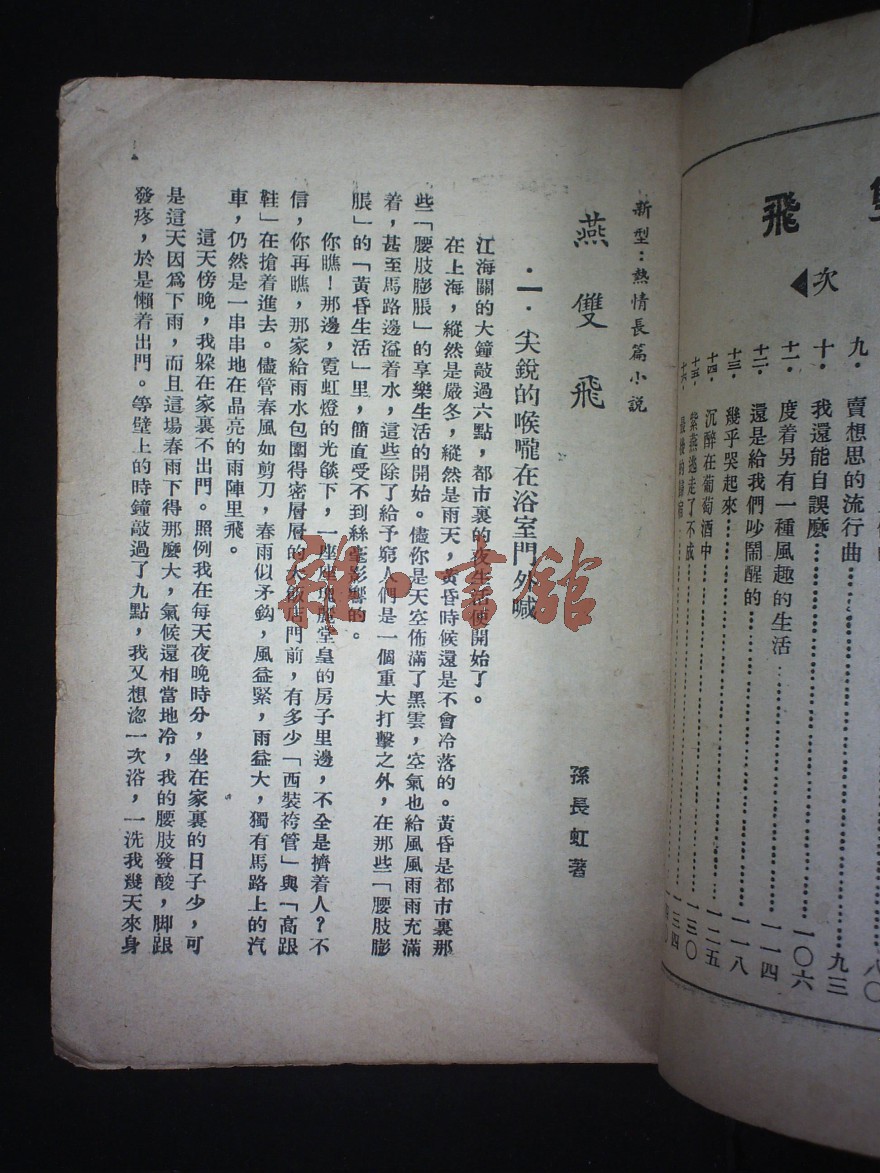 雙
飛
次
九．賣想思的流行曲……九三
十．我還能自誤麼……一〇六
十一．度着另有一種風趣的生活……一一四
十二．還是給我們吵鬧醒的……一一八
十三．幾乎哭起來……一二五
十四．沉醉在葡萄酒中……一三〇
十五．紫燕逃走了不成……一三四
新型：熱情長篇小說
燕雙飛
孫長虹著
．一．尖銳的喉嚨在浴室門外喊
江海關的大鐘敲過六點，都市裏的夜生活便開始了。
在上海，縱然是嚴冬，縱然是雨天，黃昏時候還是不會冷落的。黃昏是都市裏那
些「腰肢膨脹」的享樂生活的開始。儘你是天空佈滿了黑雲，空氣也給風風雨雨充滿
着，甚至馬路邊溢着水，這些除了給予窮人們是一個重大打擊之外，在那些「腰肢膨
脹」的「黃昏生活」里，簡直受不到絲毫影響的。
你瞧！那邊，霓虹燈的光燄下，一座座瑰麗堂皇的房子里邊，不全是擠着人？不
信，你再瞧，那家給雨水包圍得密層層的大飯店門前，有多少「西裝袴管」與「高跟
鞋」在搶着進去。儘管春風如剪刀，春雨似矛鈎，風益緊，雨益大，獨有馬路上的汽
車，仍然是一串串地在晶亮的雨陣里飛。
這天傍晚，我躲在家裏不出門。照例我在每天夜晚時分，坐在家裏的日子少，可
是這天因爲下雨，而且這場春雨下得那麼大，氣候還相當地冷，我的腰肢發酸，脚跟
發疼，於是懶着出門。等壁上的時鐘敲過了九點，我又想浴一次浴，一洗我幾天來身
1
雜·書館